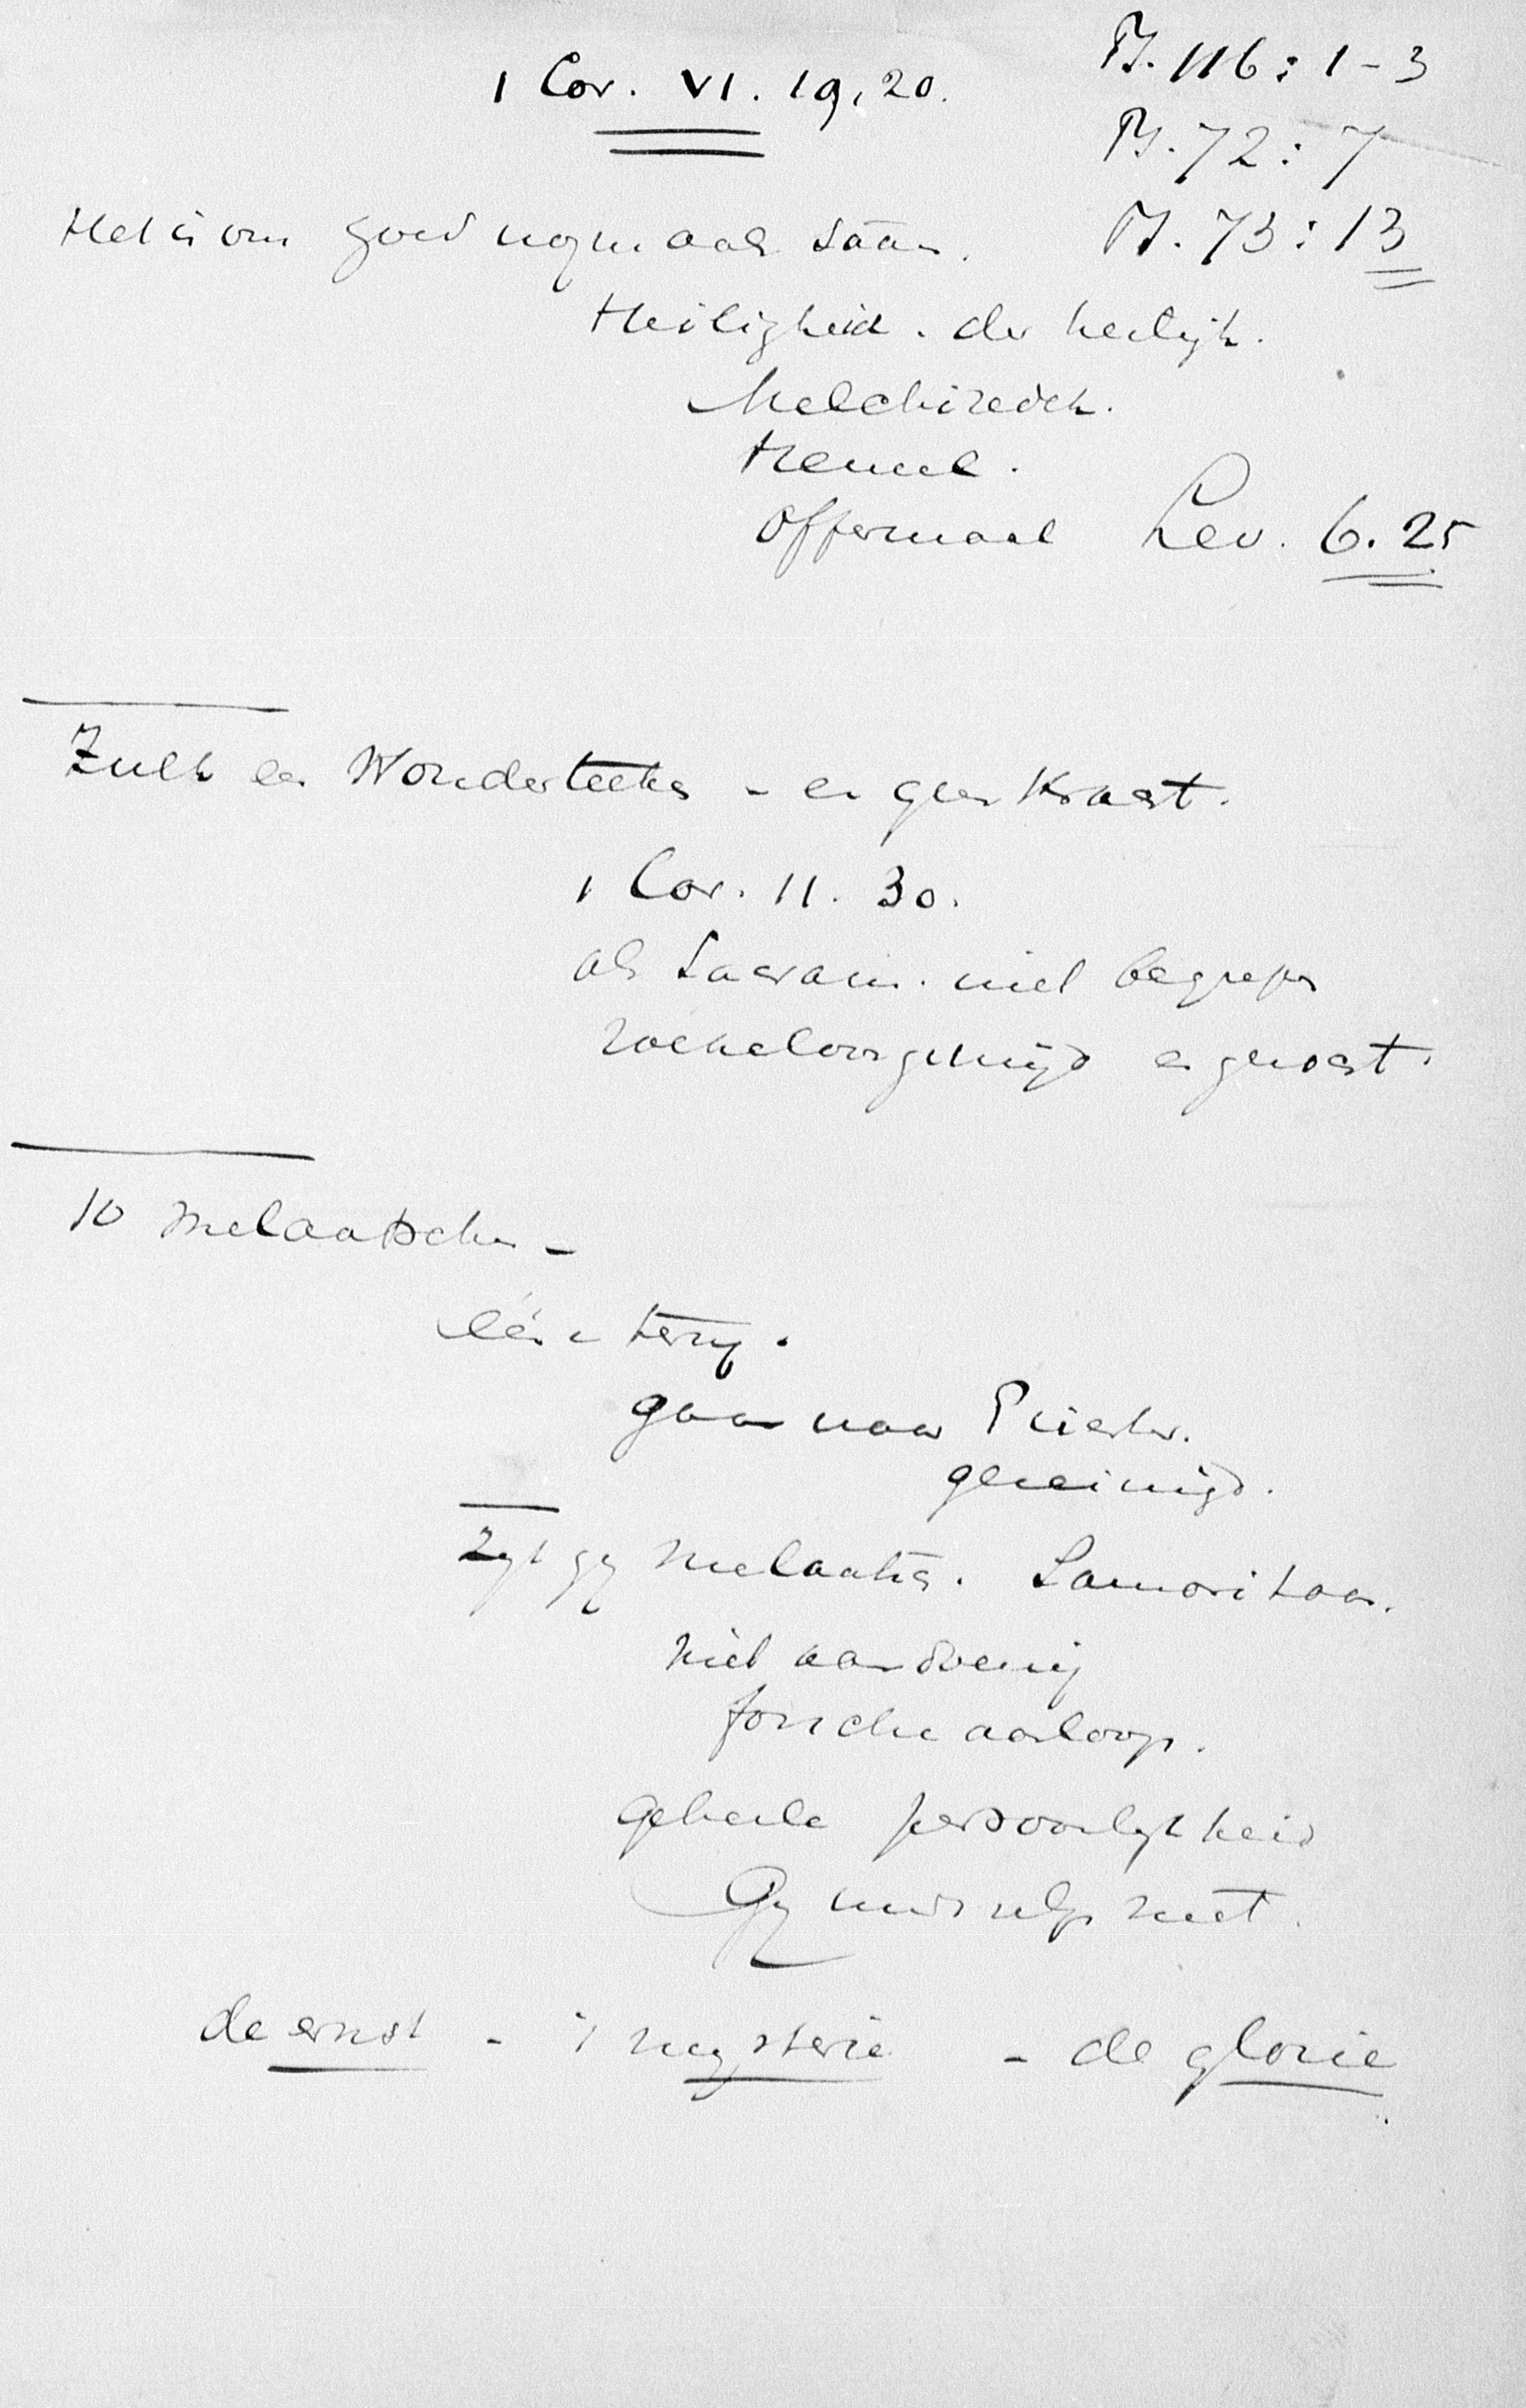 1 Cor. VI. 19, 20.
Ps. 116 : 1 - 3
Ps. 72 : 7
Ps. 73 : 13
Het is ons goed nogmaals
Heiligheid. der heerlijk.
Melchizedek.
Hemel.
Offermaal Lev. 6. 25
Zulk een Wonderteeken - en geen Kracht.
1 Cor. 11. 30.
als Sacram. niet begrepen
roekeloos gemijd en genoast.
10 Melaatschen -
één terug.
gaan naar Priester.
gereinigd.
Zijt gij Melaatsch. Samaritaan.
niet aandoening
geheele persoonlijkheid
Gij met.
de ernst - 't mysterie - de glorie